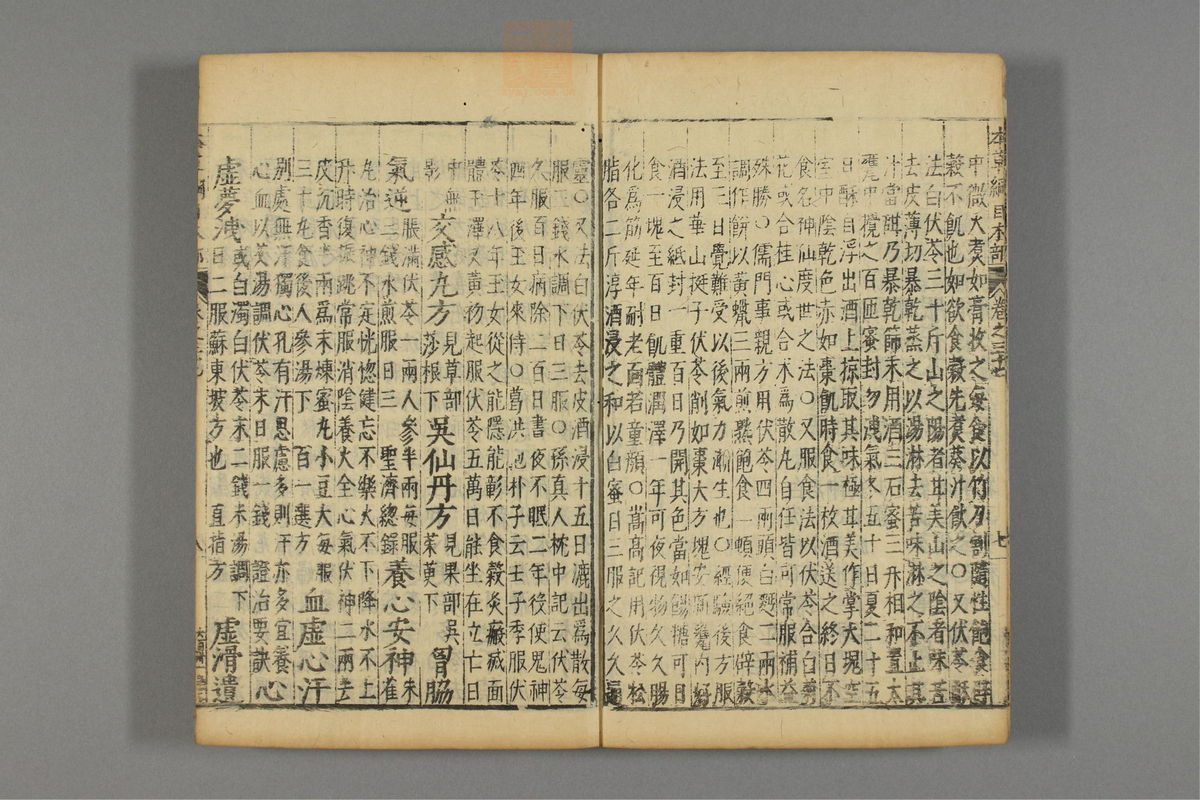 本草綱目木部 卷之三十七 七
中微火煮如膏收之每食以竹刀割隨性飽食辟
穀不飢也如欲食穀先煮葵汁飲之○又伏苓酥
法白伏苓三十斤山之陽者甘美山之陰者味苦
去皮薄切暴乾蒸之以湯淋去苦味淋之不止其
汁當甜乃暴乾篩末用酒三石蜜三升相和置大
甕中攪之百匝蜜封勿洩氣冬五十日夏二十五
日酥自浮出酒上掠取其味極甘美作掌大塊空
室中陰乾色赤如棗飢時食一枚酒送之終日不
食名神仙度世之法○又服食法以伏苓合白菊
花或合桂心或合朮爲散丸自任皆可常服補益
殊勝○儒門事親方用伏苓四兩頭白麪二兩水
調作餅以黃蠟三兩煎熟飽食一頓便絕食辟穀
至三日覺難受以後氣力漸生也○經驗後方服
法用華山挺子伏苓削如棗大方塊安新甕內好
酒浸之紙封一重百日乃開其色當如餳糖可日
食一塊至百日肌體潤澤一年可夜視物久久腸
化爲筋延年耐老面若童顏○嵩高記用伏苓松
脂各二斤淳酒浸之和以白蜜日三服之久久通
靈○又法白伏苓去皮酒浸十五日漉出爲散每
服三錢水調下日三服○孫真人枕中記云伏苓
久服百日病除二百日晝夜不眠二年後使鬼神
四年後玉女來侍○葛洪抱朴子云壬子季服伏
苓十八年玉女從之能隱能彰不食穀灸瘢滅面
體玉澤又黃初起服伏苓五萬日能坐在立亡日
中無影 交感丸方 見草部莎根下 吳仙丹方 見果部吳茱萸下 胸脇
氣逆 脹滿伏苓一兩人參半兩每服三錢水煎服日三 聖濟總錄 養心安神 朱雀
丸治心神不定恍惚健忘不樂火不下降水不上
升時復振跳常服消陰養火全心氣伏神二兩去
皮沉香半兩爲末煉蜜丸小豆大每服
三十丸食後人參湯下 百一選方 血虛心汗
別處無汗獨心孔有汗思慮多則汗亦多宜養
心血以艾湯調伏苓末日服一錢 證治要訣 心
虛夢洩 或白濁白伏苓末二錢米湯調下日二服蘇東坡方也 直指方 虛滑遺